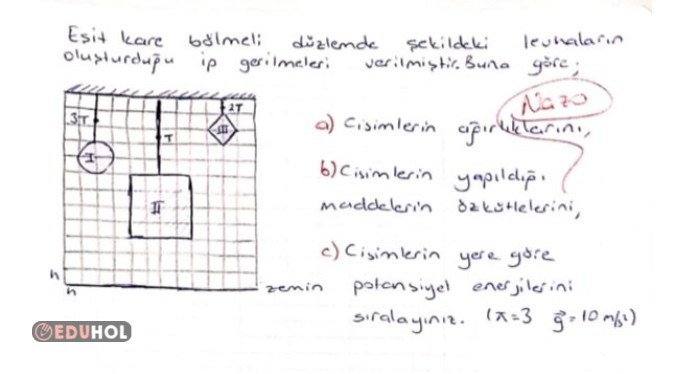 Eşit kare bölmeli düzlemde şekildeki levhaların
oluşturduğu ip gerilmeleri verilmiştir. Buna göre;
3T
T
2T
I
II
III
Nazo
a) Cisimlerin ağırlıklarını,
b) Cisimlerin yapıldığı
maddelerin özkütlelerini,
c) Cisimlerin yere göre
zemin potansiyel enerjilerini
sıralayınız. (π=3 g=10 m/s²)
h
h
EDUHOL